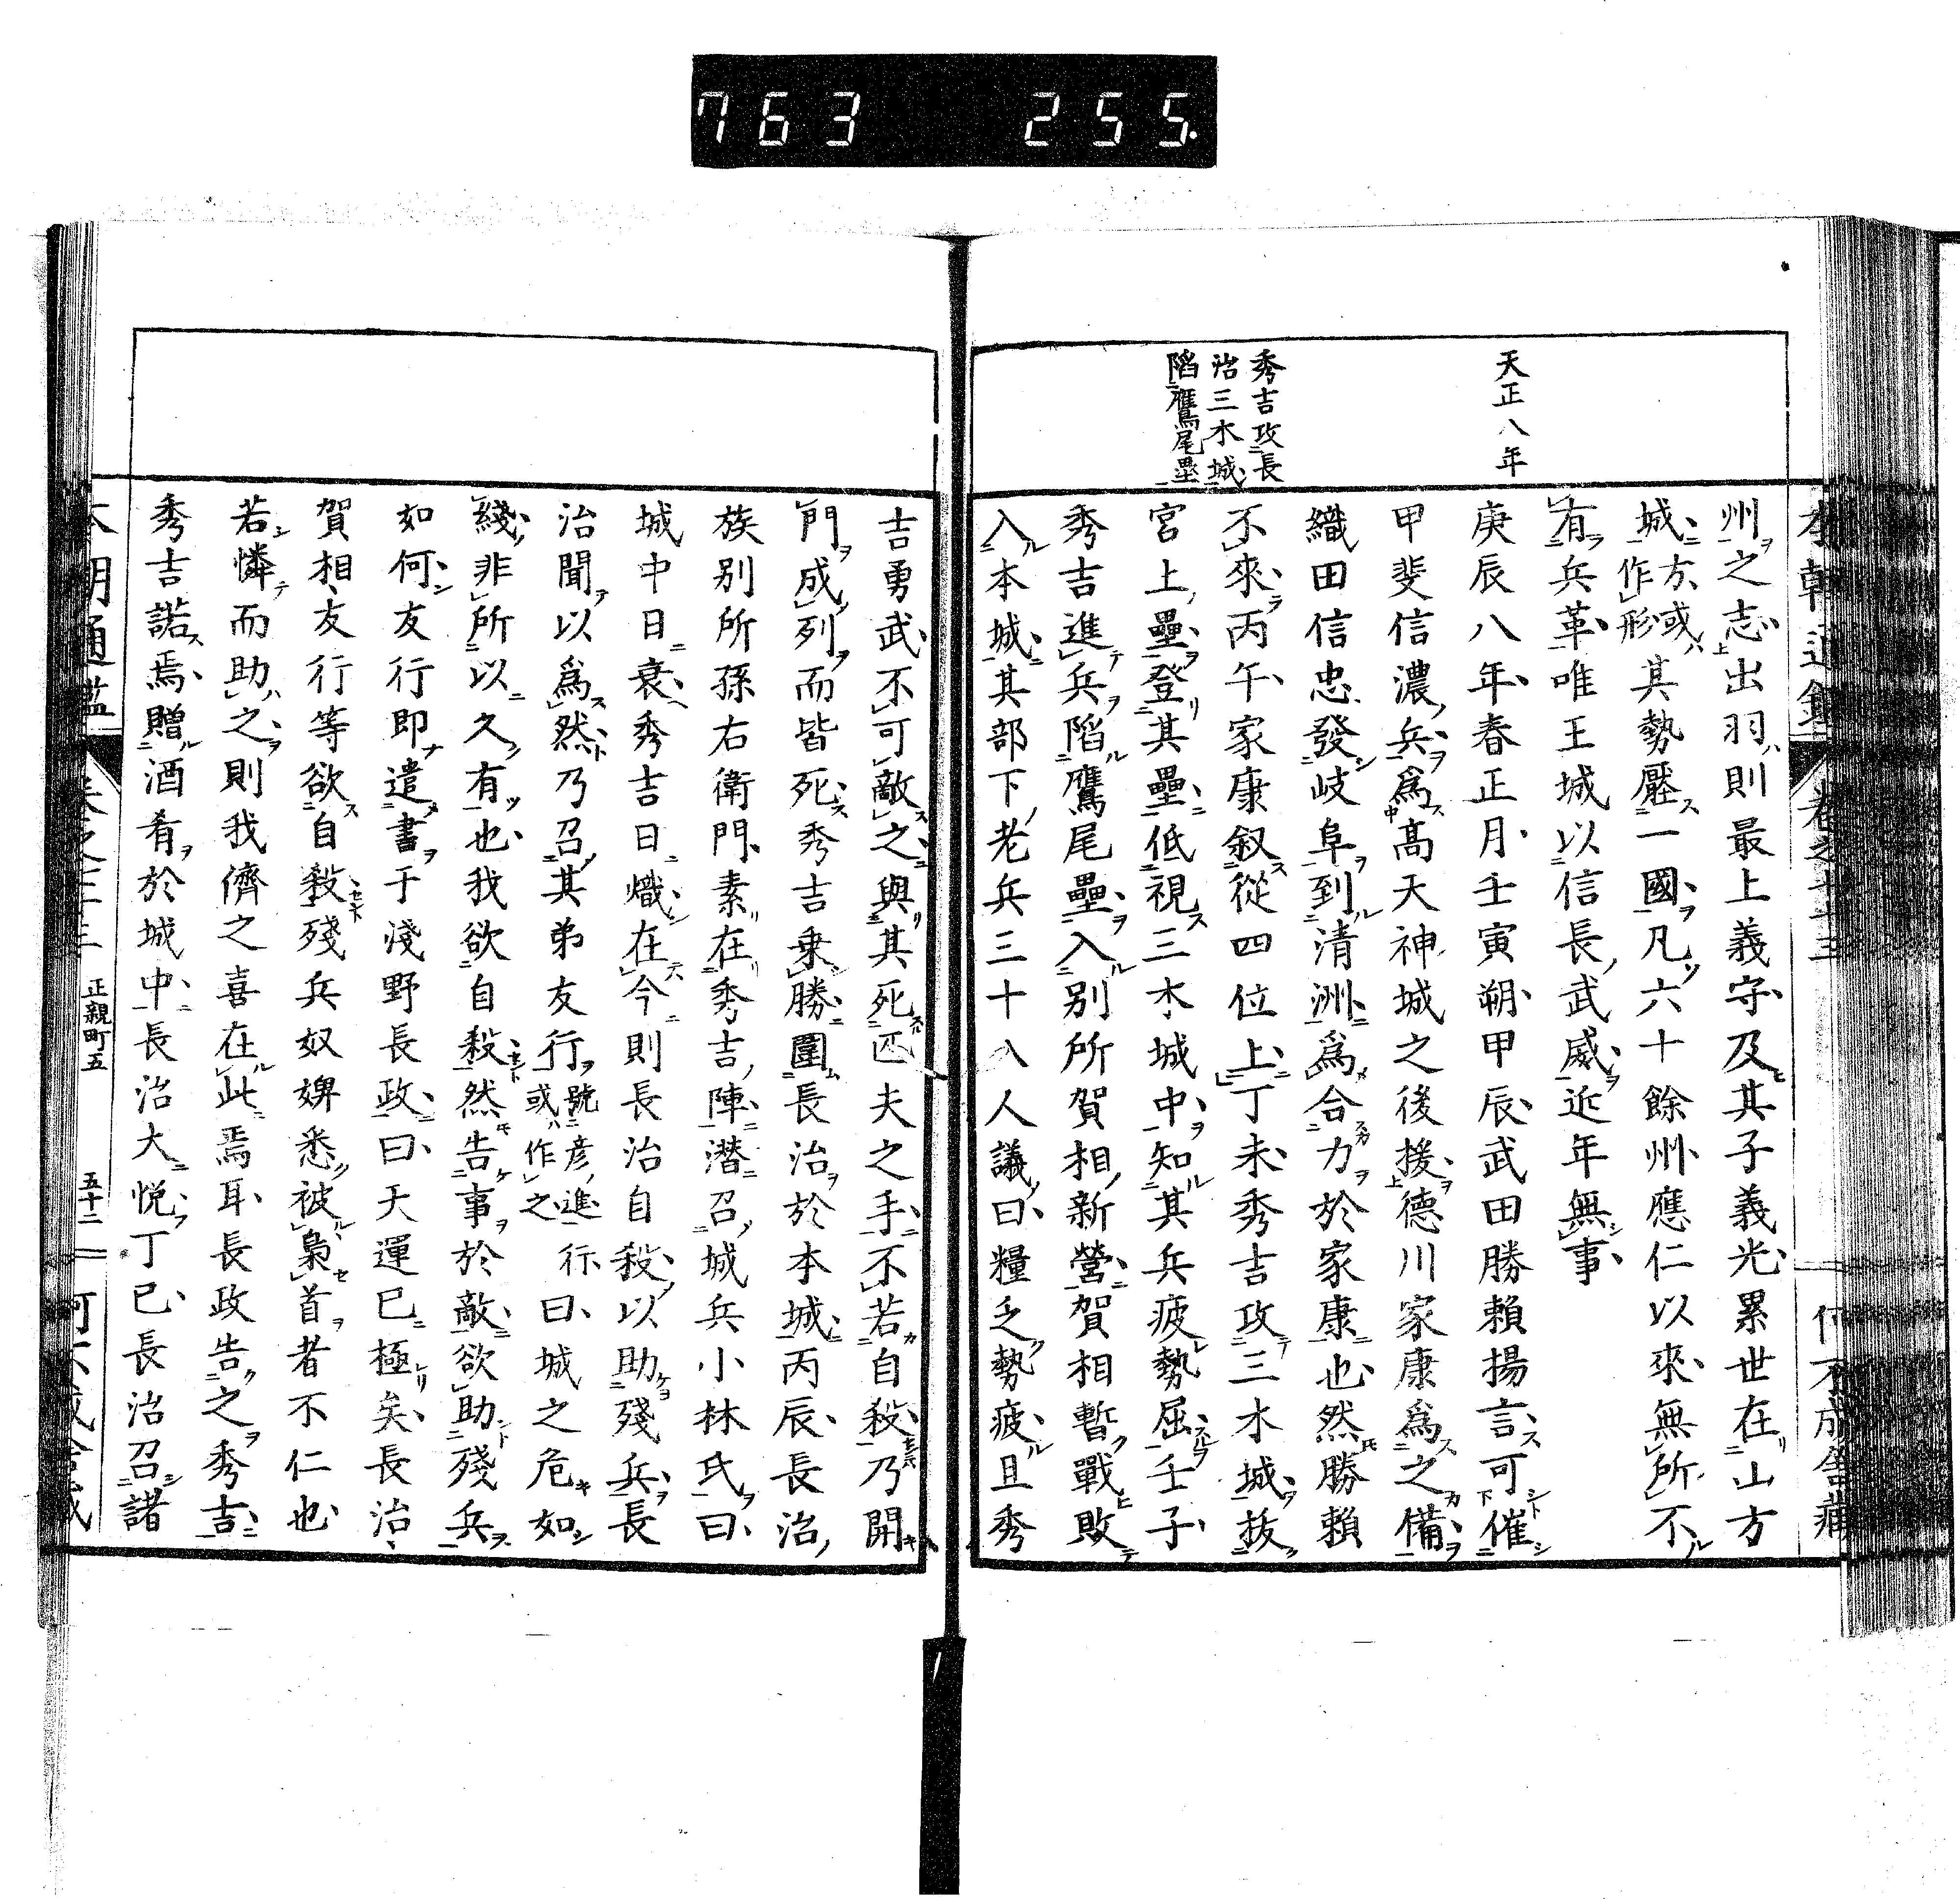 763 255.
天正八年
秀吉攻長
治三木城
陷鷹尾壘
州之志出羽則最上義守及其子義光累世在山方
城方或作形其勢壓一國凡六十餘州應仁以來無所不
有兵革唯王城以信長武威近年無事
庚辰八年春正月壬寅朔甲辰武田勝賴揚言可催
甲斐信濃兵爲高天神城之後援德川家康爲之備
織田信忠發岐阜到清洲爲合力於家康也然勝賴
不來丙午家康叙從四位上丁未秀吉攻三木城拔
宮上壘登其壘低視三木城中知其兵疲勢屈壬子
秀吉進兵陷鷹尾壘入別所賀相新營賀相暫戰敗
入本城其部下老兵三十八人議曰糧乏勢疲且秀
吉勇武不可敵之與其死匹夫之手不若自殺乃開
門成列而皆死秀吉乗勝圍長治於本城丙辰長治
族別所孫右衛門素在秀吉陣潛召城兵小林氏曰
城中日衰秀吉日熾在今則長治自殺以助殘兵長
治聞以爲然乃召其弟友行號彦進或作之行曰城之危如
綫非所以久有也我欲自殺然告事於敵欲助殘兵
如何友行即遣書于淺野長政曰天運已極矣長治
賀相友行等欲自殺殘兵奴婢悉被梟首者不仁也
若憐而助之則我儕之喜在此焉耳長政告之秀吉
秀吉諾焉贈酒肴於城中長治大悅丁巳長治召諸
本朝通鑑 正親町五 五十二